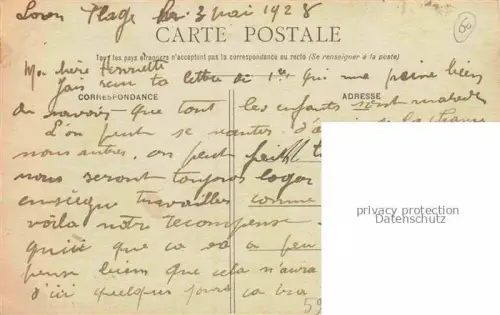 Loon Plage le 3 mai 1928
60
CARTE POSTALE
Tous les pays étrangers n'acceptent pas la correspondance au recto (Se renseigner à la poste)
Ma chère Henriette
J'ais reçu ta lettre du 1er qui me peine bien
CORRESPONDANCE
ADRESSE
de savoir que tout les enfants sont malades
L'on peut se vanter d'avoir de la
nous autres, on peut
nous seront toujours loger
travailler comme
voilà notre recompense
que ca va a peu
pense bien que cela n'aura
d'ici quelques jours ca ira
59
privacy protection
Datenschutz